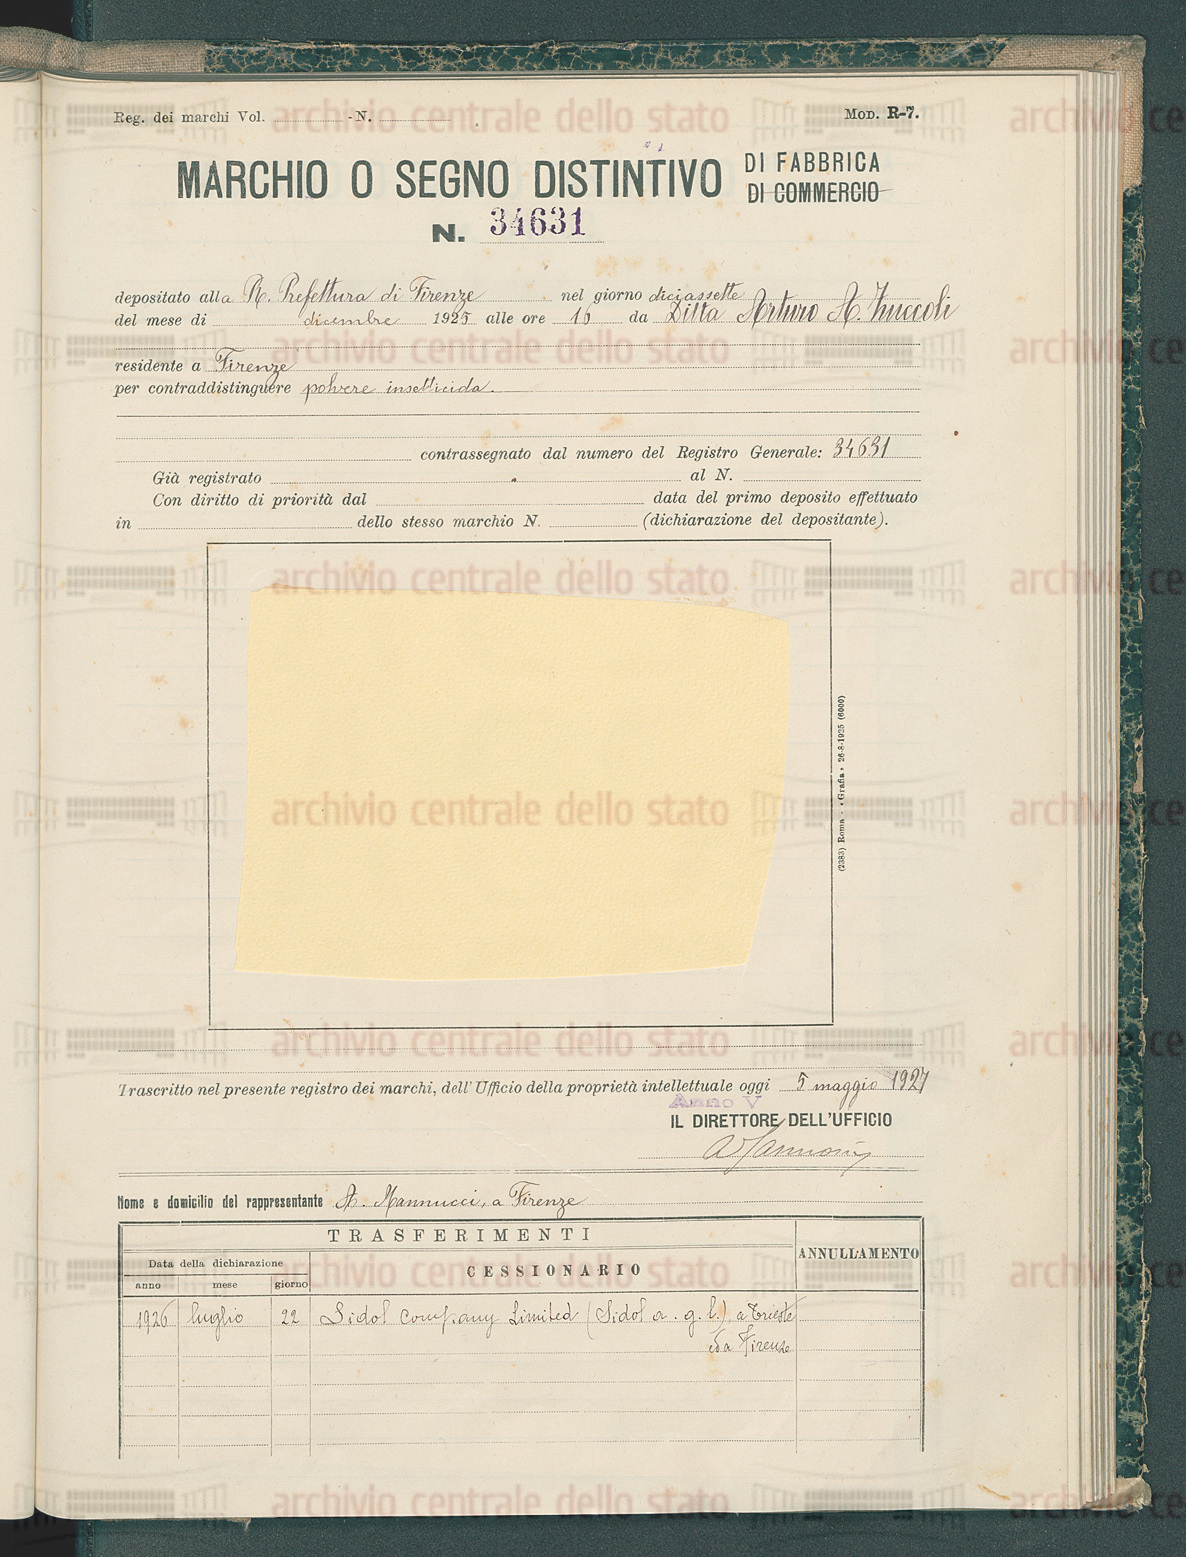 Reg. dei marchi Vol. - N. MOD. R-7.
MARCHIO O SEGNO DISTINTIVO DI FABBRICA
DI COMMERCIO
N. 34631
depositato alla R. Prefettura di Firenze nel giorno diciassette
del mese di dicembre 1925 alle ore 16 da Ditta Arturo A. Zuccoli
residente a Firenze
per contraddistinguere polvere insetticida.
contrassegnato dal numero del Registro Generale: 34631
Già registrato al N.
Con diritto di priorità dal data del primo deposito effettuato
in dello stesso marchio N. (dichiarazione del depositante).
(2383) Roma - «Grafia» 26-8-1925 (6000)
Trascritto nel presente registro dei marchi, dell'Ufficio della proprietà intellettuale oggi 5 maggio 1927
Anno V
IL DIRETTORE DELL'UFFICIO
Nome e domicilio del rappresentante A. Mannucci, a Firenze
TRASFERIMENTI
ANNULLAMENTO
Data della dichiarazione
CESSIONARIO
anno mese giorno
1926 luglio 22 Sidol Company Limited (Sidol a. g. l.) a Trieste
ed a Firenze
archivio centrale dello stato